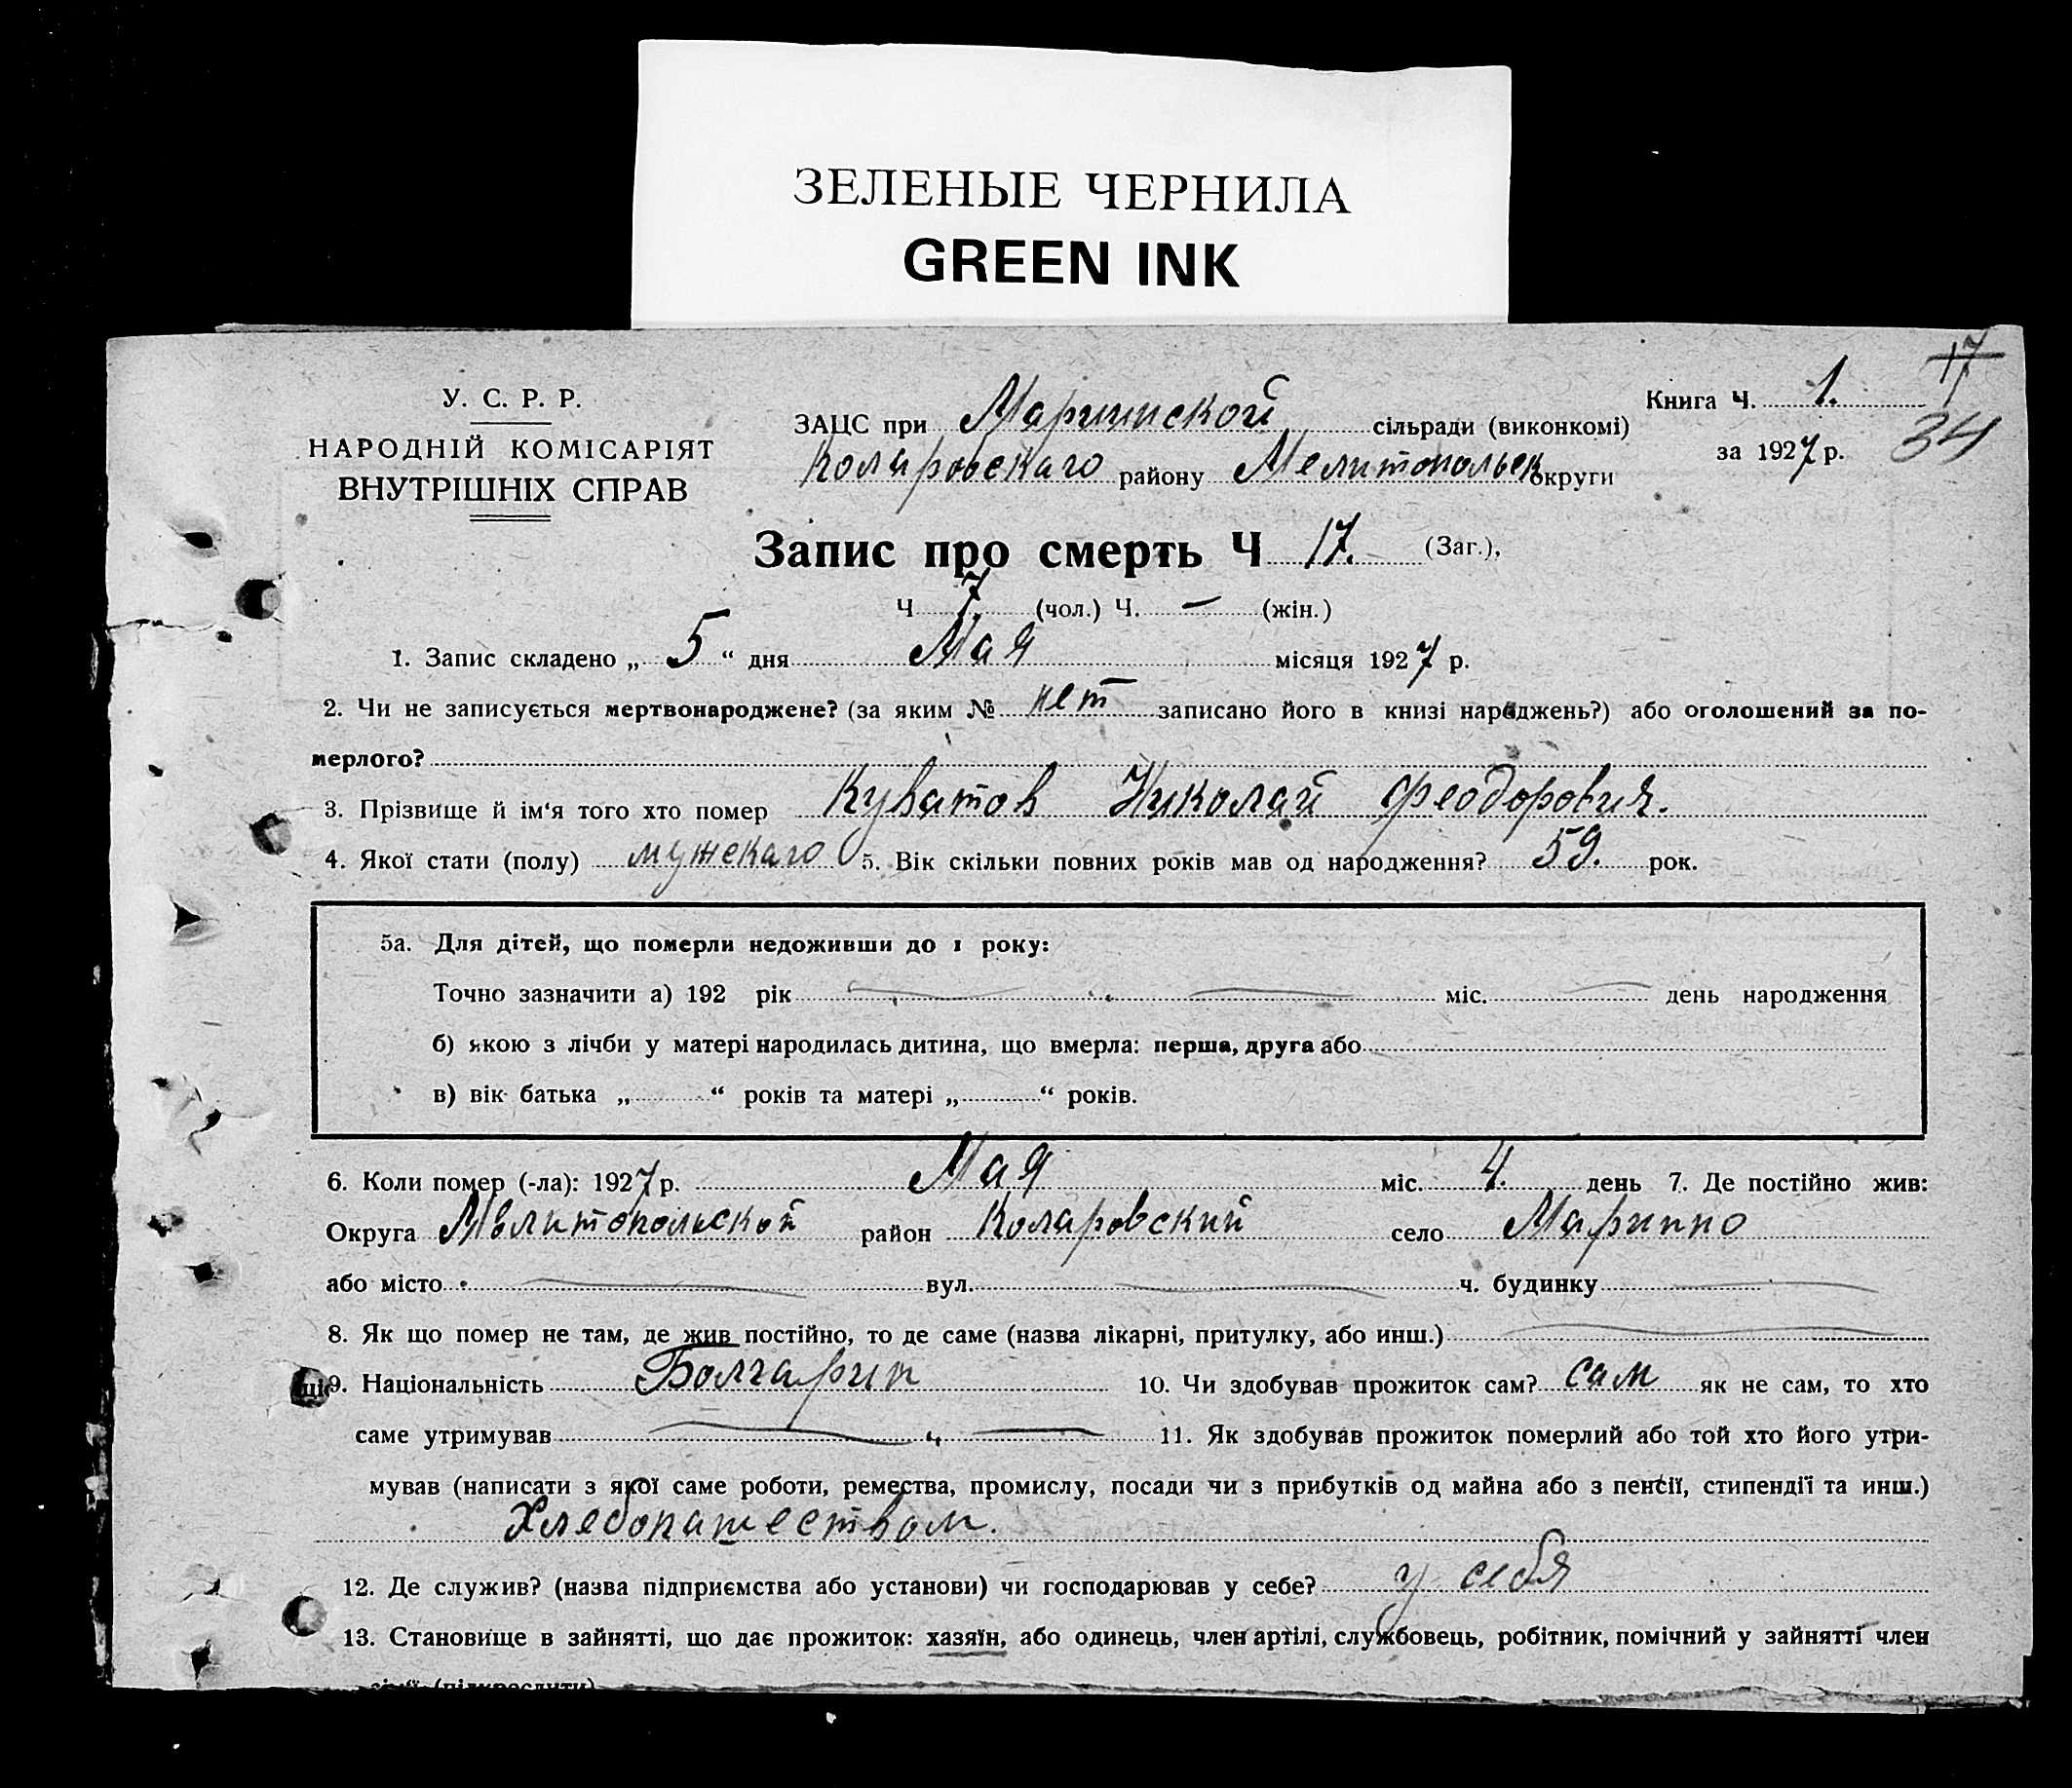 ЗЕЛЕНЫЕ ЧЕРНИЛА
GREEN INK
17
34
У. С. Р. Р.
НАРОДНІЙ КОМІСАРІЯТ
ВНУТРІШНІХ СПРАВ
ЗАЦС при Маринской сільради (виконкомі)
Коларовскаго району Мелитопольск округи
Книга Ч. 1.
за 1927 р.
Запис про смерть Ч 17. (Заг.),
Ч 7. (чол.) Ч. — (жін.)
1. Запис складено „ 5 “ дня Мая місяця 1927 р.
2. Чи не записується мертвонароджене? (за яким № нет записано його в книзі народжень?) або оголошений за по-
мерлого?
3. Прізвище й ім‘я того хто помер Куватов Николай Феодорович.
4. Якої стати (полу) мужскаго 5. Вік скільки повних років мав од народження? 59. рок.
5а. Для дітей, що померли недоживши до 1 року:
Точно зазначити а) 192 рік міс. день народження
б) якою з лічби у матері народилась дитина, що вмерла: перша, друга або
в) вік батька „ “ років та матері „ “ років.
6. Коли помер (-ла): 1927 р. Мая міс. 4. день 7. Де постійно жив:
Округа Мелитопольской район Коларовский село Маринно
або місто вул. ч. будинку
8. Як що помер не там, де жив постійно, то де саме (назва лікарні, притулку, або инш.)
9. Національність Болгарин 10. Чи здобував прожиток сам? сам як не сам, то хто
саме утримував 11. Як здобував прожиток померлий або той хто його утри-
мував (написати з якої саме роботи, ремества, промислу, посади чи з прибутків од майна або з пенсії, стипендії та инш.)
Хлебопашеством.
12. Де служив? (назва підприємства або установи) чи господарював у себе? у себя
13. Становище в зайнятті, що дає прожиток: хазяїн, або одинець, член артілі, службовець, робітник, помічний у зайнятті член